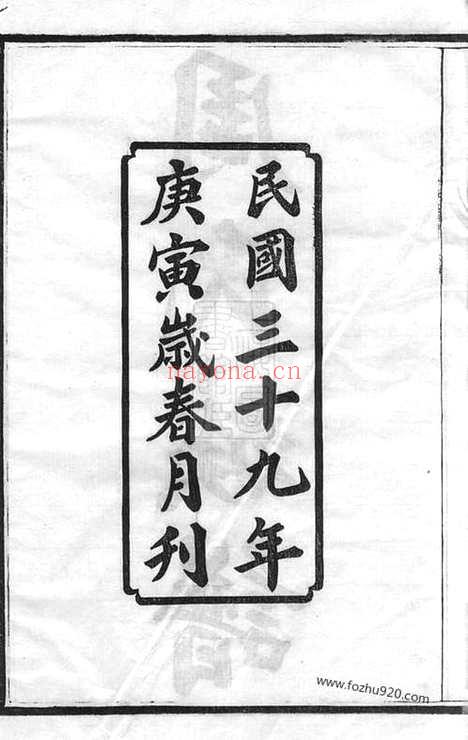 民國三十九年
庚寅歲春月刊
nayona.cn
www.fozhu920.com